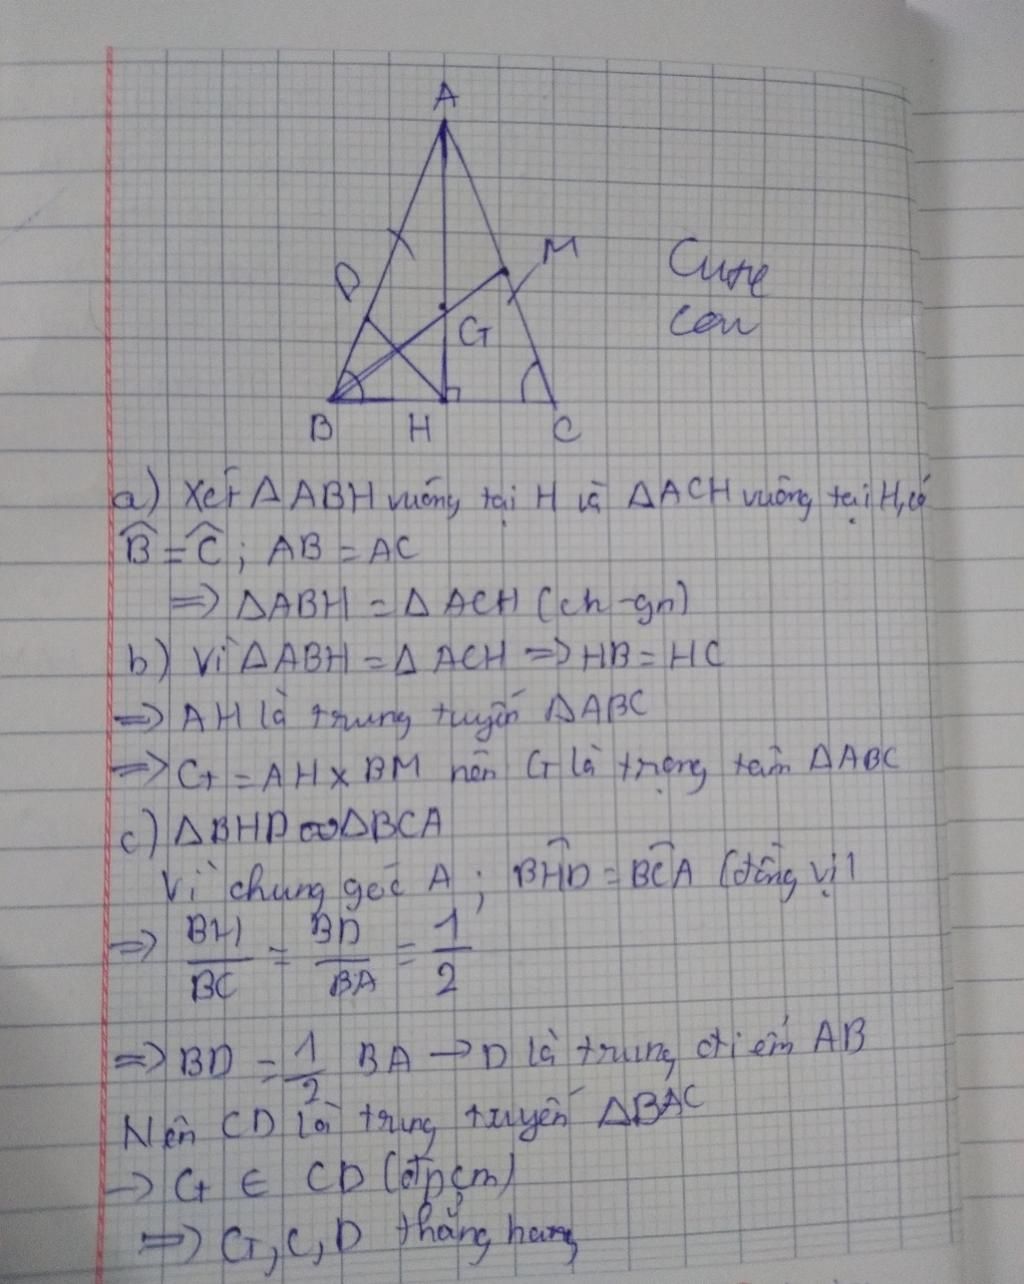 A
D
M
G
B
H
C
Cute
con
a) Xét ΔABH vuông tại H và ΔACH vuông tại H, có
B̂ = Ĉ; AB = AC
=> ΔABH = ΔACH (ch-gn)
b) Vì ΔABH = ΔACH => HB = HC
=> AH là trung tuyến ΔABC
=> G = AH x BM nên G là trọng tâm ΔABC
c) ΔBHD ∞ ΔBCA
Vì chung góc A; BĤD = BĈA (đồng vị)
=> BH/BC = BD/BA = 1/2
=> BD = 1/2 BA -> D là trung điểm AB
Nên CD là trung tuyến ΔBAC
-> G ∈ CD (đpcm)
=> G, C, D thẳng hang